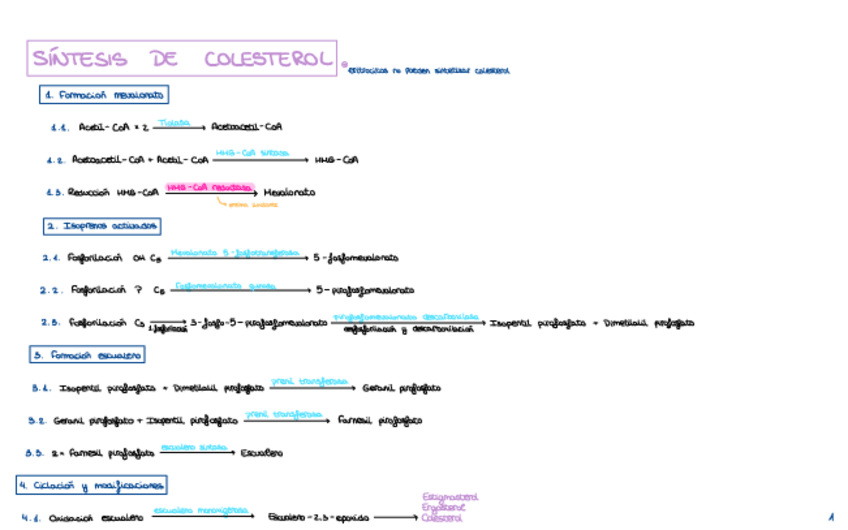 SÍNTESIS DE COLESTEROL
eritrocitos no pueden sintetizar colesterol
1. Formación mevalonato
1.1. Acetil-CoA × 2 Tiolasa → Acetoacetil-CoA
1.2. Acetoacetil-CoA + Acetil-CoA HMG-CoA sintasa → HMG-CoA
1.3. Reducción HMG-CoA HMG-CoA reductasa → Mevalonato
2. Isoprenos activados
2.1. Fosforilación OH C5 Mevalonato 5-fosfotransferasa → 5-fosfomevalonato
2.2. Fosforilación P C5 fosfomevalonato quinasa → 5-pirofosfomevalonato
2.3. Fosforilación C3 → 3-fosfo-5-pirofosfomevalonato pirofosfomevalonato descarboxilasa → Isopentil pirofosfato + Dimetilalil pirofosfato
desfosforilación y descarboxilación
3. Formación escualeno
3.1. Isopentil pirofosfato + Dimetilalil pirofosfato prenil transferasa → Geranil pirofosfato
3.2. Geranil pirofosfato + Isopentil pirofosfato prenil transferasa → Farnesil pirofosfato
3.3. 2× Farnesil pirofosfato escualeno sintasa → Escualeno
4. Ciclación y modificaciones
4.1. Oxidación escualeno escualeno monoxigenasa → Escualeno-2,3-epóxido →
Estigmasterol
Ergosterol
Colesterol
1